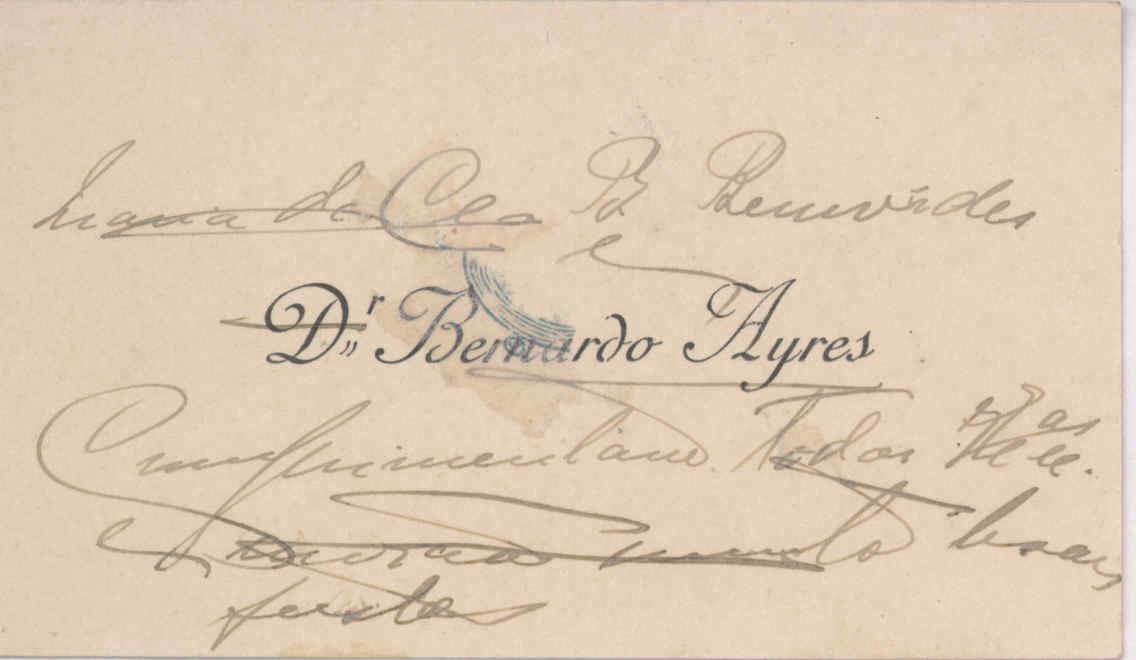 Maria da C B Benevides
e
Dr Bernardo Ayres
Cumprimentam Todas
muito boas
festas